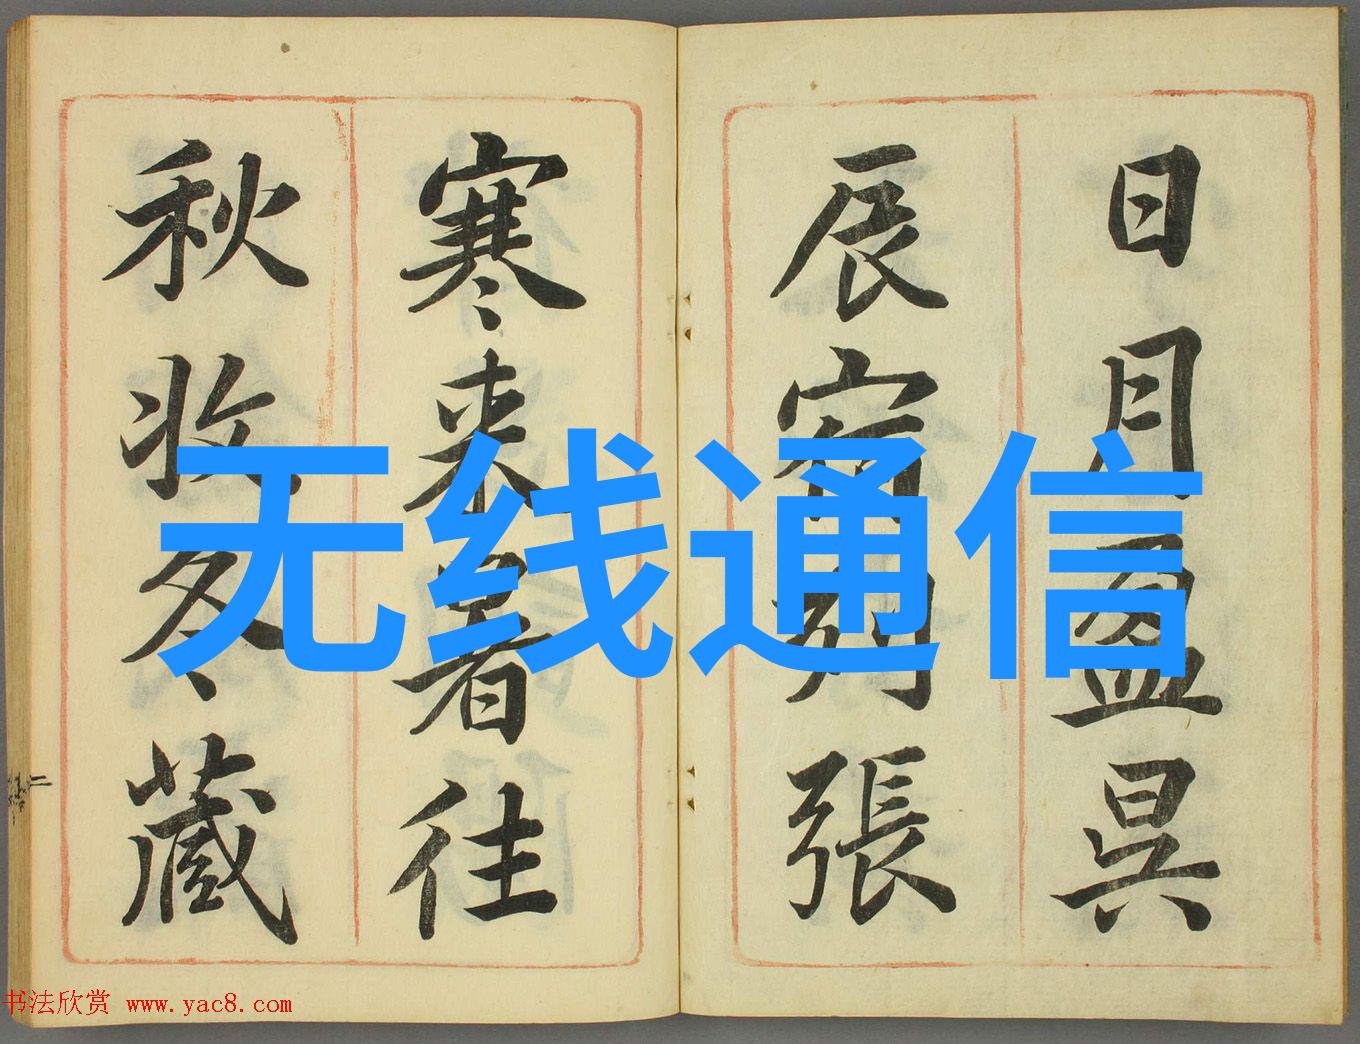 日月盈昃
辰宿列張
寒来暑往
秋收冬藏
无线通信
二
书法欣赏 www.yac8.com